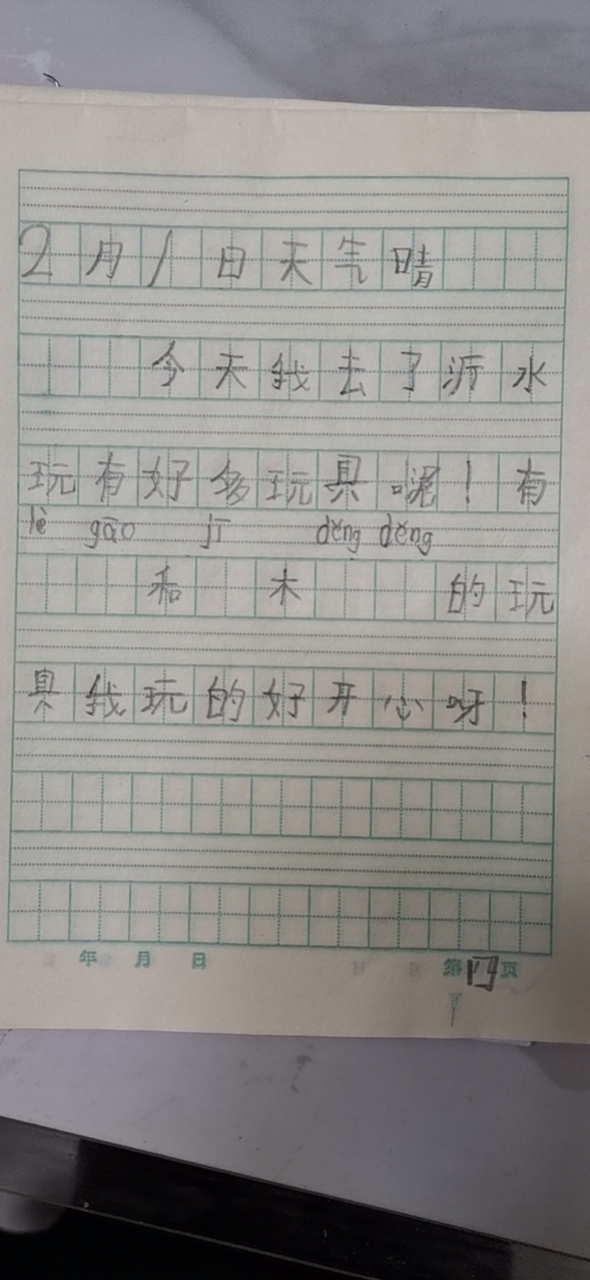 2月1日天气晴
今天我去了沂水
玩有好多玩具呢！有
lè gāo jī děng děng
和 木 的玩
具我玩的好开心呀！
年 月 日 第 页